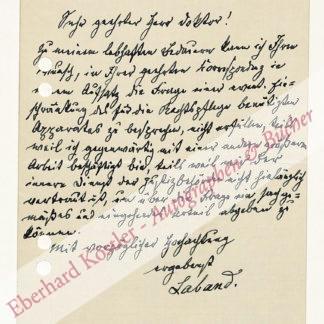 Sehr geehrter Herr Doktor!
Zu meinem lebhaften Bedauern kann ich Ihren
Wunsch, in Ihrer geehrten Korrespondenz in
einem Aufsatz die Frage einer event. Ein-
schränkung des für die Rechtspflege benutzten
Apparates zu besprechen, nicht erfüllen, teils
weil ich gegenwärtig mit einer andern größeren
Arbeit beschäftigt bin, teils weil mir der
innere Dienst der Justizbehörden nicht hinlänglich
vertraut ist, um über die Frage ein sachge-
mäßes und eingehendes Urteil abgeben zu
können.
Mit vorzüglicher Hochachtung
ergebenst
Laband.
Eberhard Köstler - Autographen & Bücher